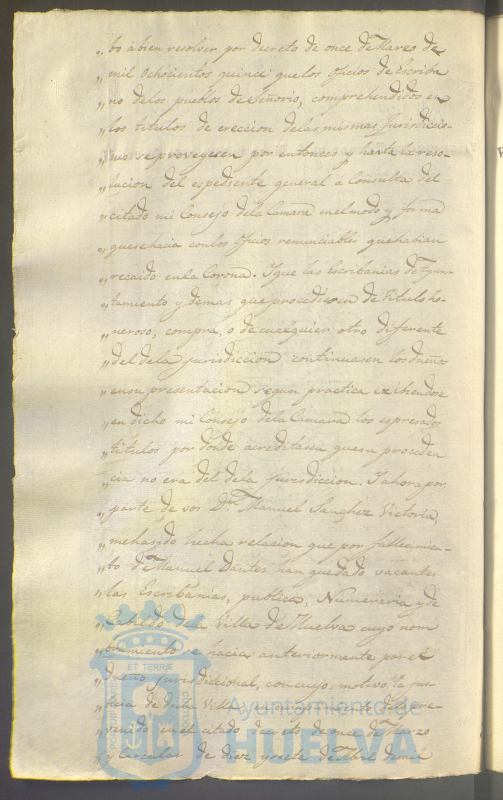 „ bó à bien resolver por decreto de once de Marzo de
„ mil ochocientos quince que los oficios de Escriba
„ no de los pueblos de Señorio, comprehendidos en
„ los titulos de ereccion de las mismas Jurisdiccio-
„ nes se proveyesen por entonces y hasta la reso-
„ lucion del espediente general à Consulta del
„ citado mi Consejo de la Camara en el modo y forma
„ que se hacia con los oficios renunciables que habian
„ recaido en la Corona. Y que las Escribanias de Ayun-
„ tamiento y demas que procediesen de titulo ho-
„ neroso, compra, o de cualquier otro diferente
„ del de la jurisdiccion, continuasen los dueños
„ en su presentacion segun practica exibiendose
„ en dicho mi Consejo de la Camara los espresados
„ titulos por donde acreditasen que su proceden
„ cia no era del de la Jurisdiccion. Y ahora por
„ parte de vos Dn. Manuel Sanchez Victoria,
„ me ha sido hecha relacion que por fallecimien-
„ to de Manuel Dantes han quedado vacantes
„ las Escribanias, publica, Numeraria y de
„ Cabildo de la Villa de Huelva cuyo nom
„ bramiento se hacia anteriormente por el
„ dueño jurisdiccional, con cuyo motivo la jus-
„ ticia de dicha Villa
„ venido en el citado decreto de once de Marzo
„ y circular de diez y siete de Abril de mil
ET TERRÆ
Ayuntamiento de
HUELVA